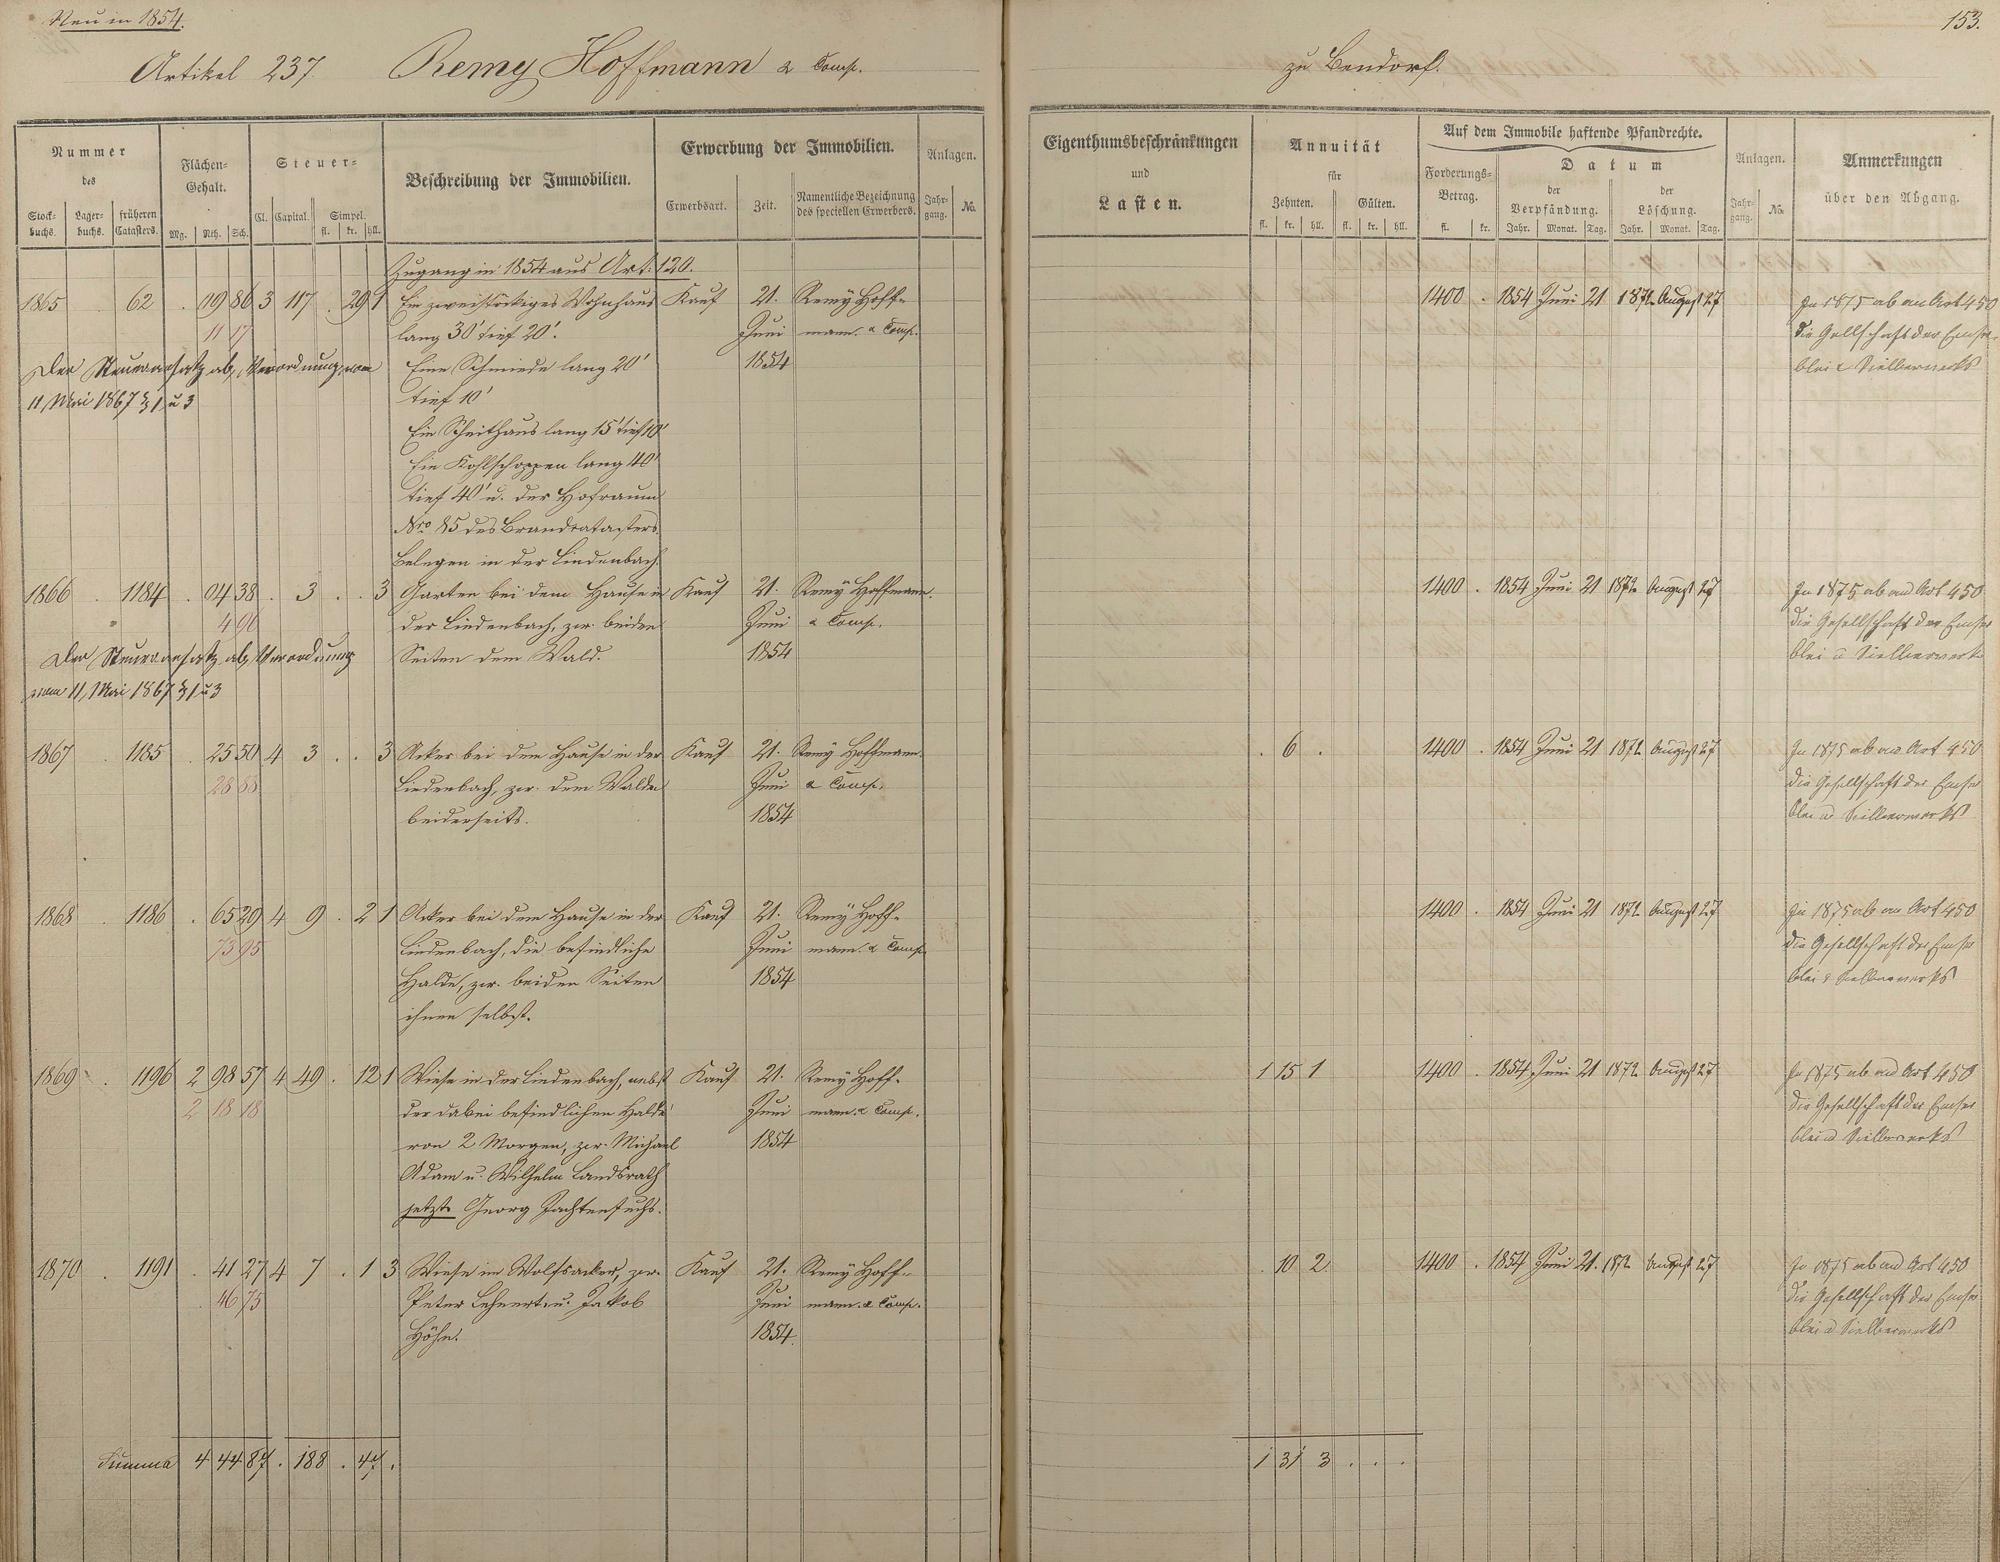 Neu in 1854.
Artikel 237. Remy Hoffmann & Comp. zu Bendorf.
153.
Nummer
des
Stock-
buchs.
Lager-
buchs.
früheren
Catasters.
Flächen-
Gehalt.
Mg. Rth. Sch.
Steuer-
Cl. Capital. Simpel.
fl. kr. hll.
Beschreibung der Immobilien.
Erwerbung der Immobilien.
Erwerbsart. Zeit. Namentliche Bezeichnung
des speciellen Erwerbers.
Anlagen.
Jahr-
gang. No.
Eigenthumsbeschränkungen
und
Lasten.
Annuität
für
Zehnten. Gülten.
fl. kr. hll. fl. kr. hll.
Auf dem Immobile haftende Pfandrechte.
Forderungs-
Betrag.
fl. kr.
Datum
der
Verpfändung.
Jahr. Monat. Tag.
der
Löschung.
Jahr. Monat. Tag.
Anlagen.
Jahr-
gang. No.
Anmerkungen
über den Abgang.
Zugang in 1854 aus Art. 120.
1865 . 62 . 09 86 3 117 . 29 1 Ein zweistöckiges Wohnhaus Kauf 21. Remy Hoff- 1400 . 1854 Juni 21 1872 August 27 In 1875 ab an Art 450
11 17 lang 30' tief 20'. Juni mann & Comp. die Gesellschaft des Emser
Der Steueransatz ab, Verordnung vom Eine Schmiede lang 20' 1854 Blei & Silberwerks
11 Mai 1867 § 1 u 3 tief 10'
Ein Scheithaus lang 15' tief 10'
Ein Kohlschoppen lang 40'
tief 40' u. der Hofraum
Nro 85 des Brandcatasters
Belegen in der Lindenbach.
1866 . 1184 . 04 38 . 3 . . 3 Garten bei dem Hause in Kauf 21. Remy Hoffmann 1400 . 1854 Juni 21 1872 August 27 In 1875 ab an Art 450
4 96 der Lindenbach, zw. beiden Juni & Comp. die Gesellschaft des Emser
Der Steueransatz ab, Verordnung Seiten dem Wald. 1854 Blei & Silberwerks
vom 11, Mai 1867 § 1 u 3
1867 . 1185 . 25 50 4 3 . . 3 Acker bei dem Hause in der Kauf 21. Remy Hoffmann . 6 . 1400 . 1854 Juni 21 1872 August 27 In 1875 ab an Art 450
28 88 Lindenbach, zw. dem Walde Juni & Comp. die Gesellschaft des Emser
beiderseits. 1854 Blei & Silberwerks
1868 . 1186 . 65 29 4 9 . 2 1 Acker bei dem Hause in der Kauf 21. Remy Hoff- 1400 . 1854 Juni 21 1872 August 27 In 1875 ab an Art 450
73 95 Lindenbach, die befindliche Juni mann & Comp. die Gesellschaft des Emser
Halde, zw. beiden Seiten 1854 Blei & Silberwerks
ihnen selbst.
1869 . 1196 2 98 57 4 49 . 12 1 Wiese in der Lindenbach, nebst Kauf 21. Remy Hoff- 1 15 1 1400 . 1854 Juni 21 1872 August 27 In 1875 ab an Art 450
2 18 18 der dabei befindlichen Halde Juni mann & Comp. die Gesellschaft des Emser
von 2 Morgen, zw. Michael 1854 Blei & Silberwerks
Adam u. Wilhelm Landsrath
jetzt Georg Fachtenfuchs.
1870 . 1191 . 41 27 4 7 . 1 3 Wiese im Wolfsacker, zw. Kauf 21. Remy Hoff- . 10 2 1400 . 1854 Juni 21. 1872 August 27 In 1875 ab an Art 450
46 75 Peter Lehnert u. Jakob Juni mann & Comp. die Gesellschaft des Emser
Höhn. 1854 Blei & Silberwerks
Summa 4 44 87 . 188 . 47 . 1 31 3 . . .